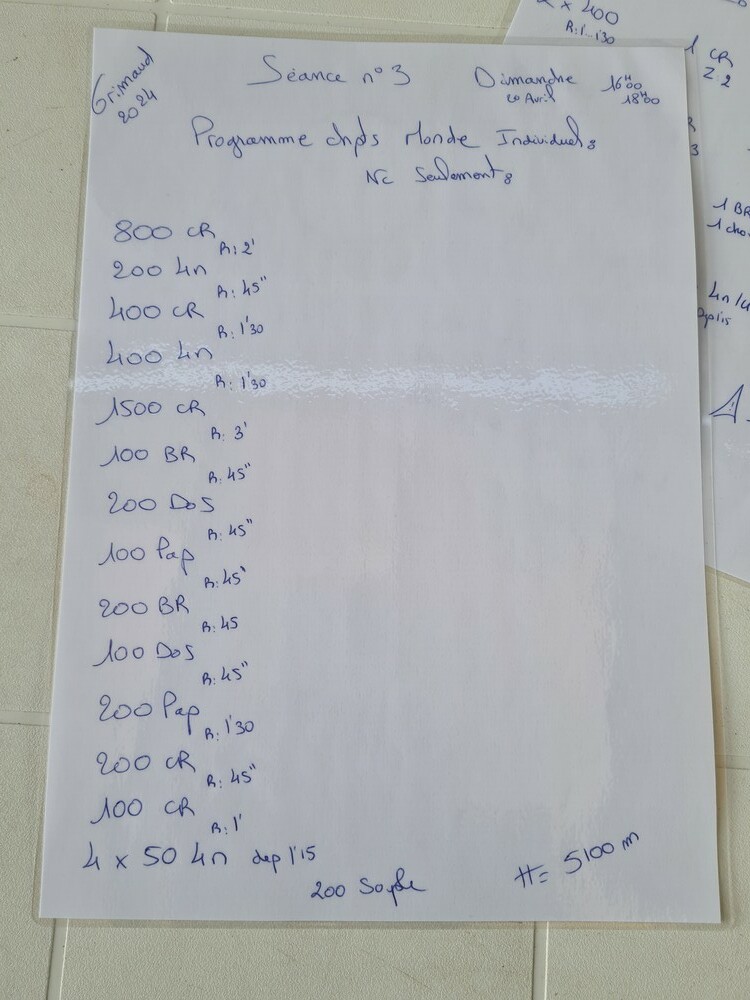 2 x 400
R: 1'30
1 CR
Z: 2
3
1 BR
1 cho
4n
Grimaud
2024
Séance n°3
Dimanche
20 Avril
16H00
18H00
Programme chpts Monde Individuel:
NC Seulement:
800 CR
R: 2'
200 4n
R: 45"
400 CR
R: 1'30
400 4n
R: 1'30
1500 CR
R: 3'
100 BR
R: 45"
200 DoS
R: 45"
100 Pap
R: 45"
200 BR
R: 45
100 DoS
R: 45"
200 Pap
R: 1'30
200 CR
R: 45"
100 CR
R: 1'
4 x 50 4n dep 1'15
200 Souple
tt = 5100 m